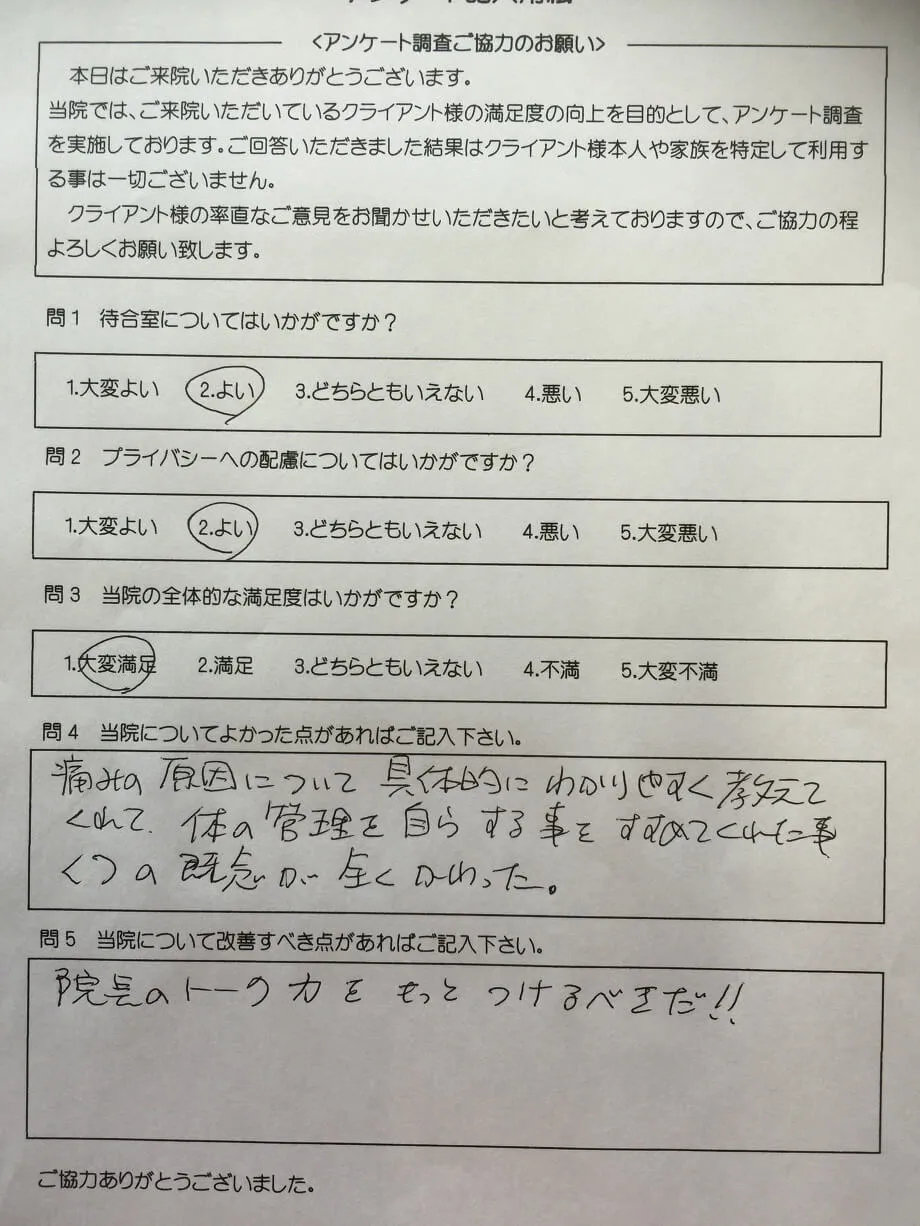 アンケート記入用紙
<アンケート調査ご協力のお願い>
本日はご来院いただきありがとうございます。
当院では、ご来院いただいているクライアント様の満足度の向上を目的として、アンケート調査
を実施しております。ご回答いただきました結果はクライアント様本人や家族を特定して利用す
る事は一切ございません。
クライアント様の率直なご意見をお聞かせいただきたいと考えておりますので、ご協力の程
よろしくお願い致します。
問1 待合室についてはいかがですか?
1.大変よい 2.よい 3.どちらともいえない 4.悪い 5.大変悪い
問2 プライバシーへの配慮についてはいかがですか?
1.大変よい 2.よい 3.どちらともいえない 4.悪い 5.大変悪い
問3 当院の全体的な満足度はいかがですか?
1.大変満足 2.満足 3.どちらともいえない 4.不満 5.大変不満
問4 当院についてよかった点があればご記入下さい。
痛みの原因について具体的にわかりやすく教えて
くれて、体の管理を自らする事をすすめてくれた事
くつの既念が全くかわった。
問5 当院について改善すべき点があればご記入下さい。
院長のトーク力をもっとつけるべきだ!!
ご協力ありがとうございました。